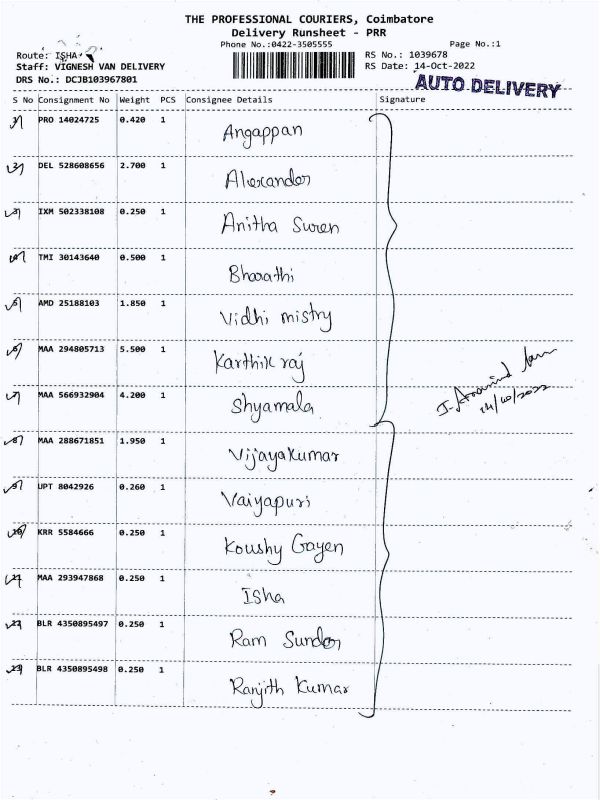 THE PROFESSIONAL COURIERS, Coimbatore
Delivery Runsheet - PRR
Phone No.:0422-3505555 Page No.:1
Route: ISHA RS No.: 1039678
Staff: VIGNESH VAN DELIVERY RS Date: 14-Oct-2022
DRS No.: DCJB103967801 AUTO DELIVERY
S No Consignment No Weight PCS Consignee Details Signature
1 PRO 14024725 0.420 1 Angappan
2 DEL 528608656 2.700 1 Alexander
3 IXM 502338108 0.250 1 Anitha Suren
4 TMI 30143640 0.500 1 Bharathi
5 AMD 25188103 1.850 1 Vidhi mistry
6 MAA 294805713 5.500 1 Karthik raj
7 MAA 566932904 4.200 1 Shyamala
J. Aravind
14/10/2022
8 MAA 288671851 1.950 1 Vijayakumar
9 UPT 8042926 0.260 1 Vaiyapuri
10 KRR 5584666 0.250 1 Koushy Gayen
11 MAA 293947868 0.250 1 Isha
12 BLR 4350895497 0.250 1 Ram Sunder
13 BLR 4350895498 0.250 1 Ranjith Kumar